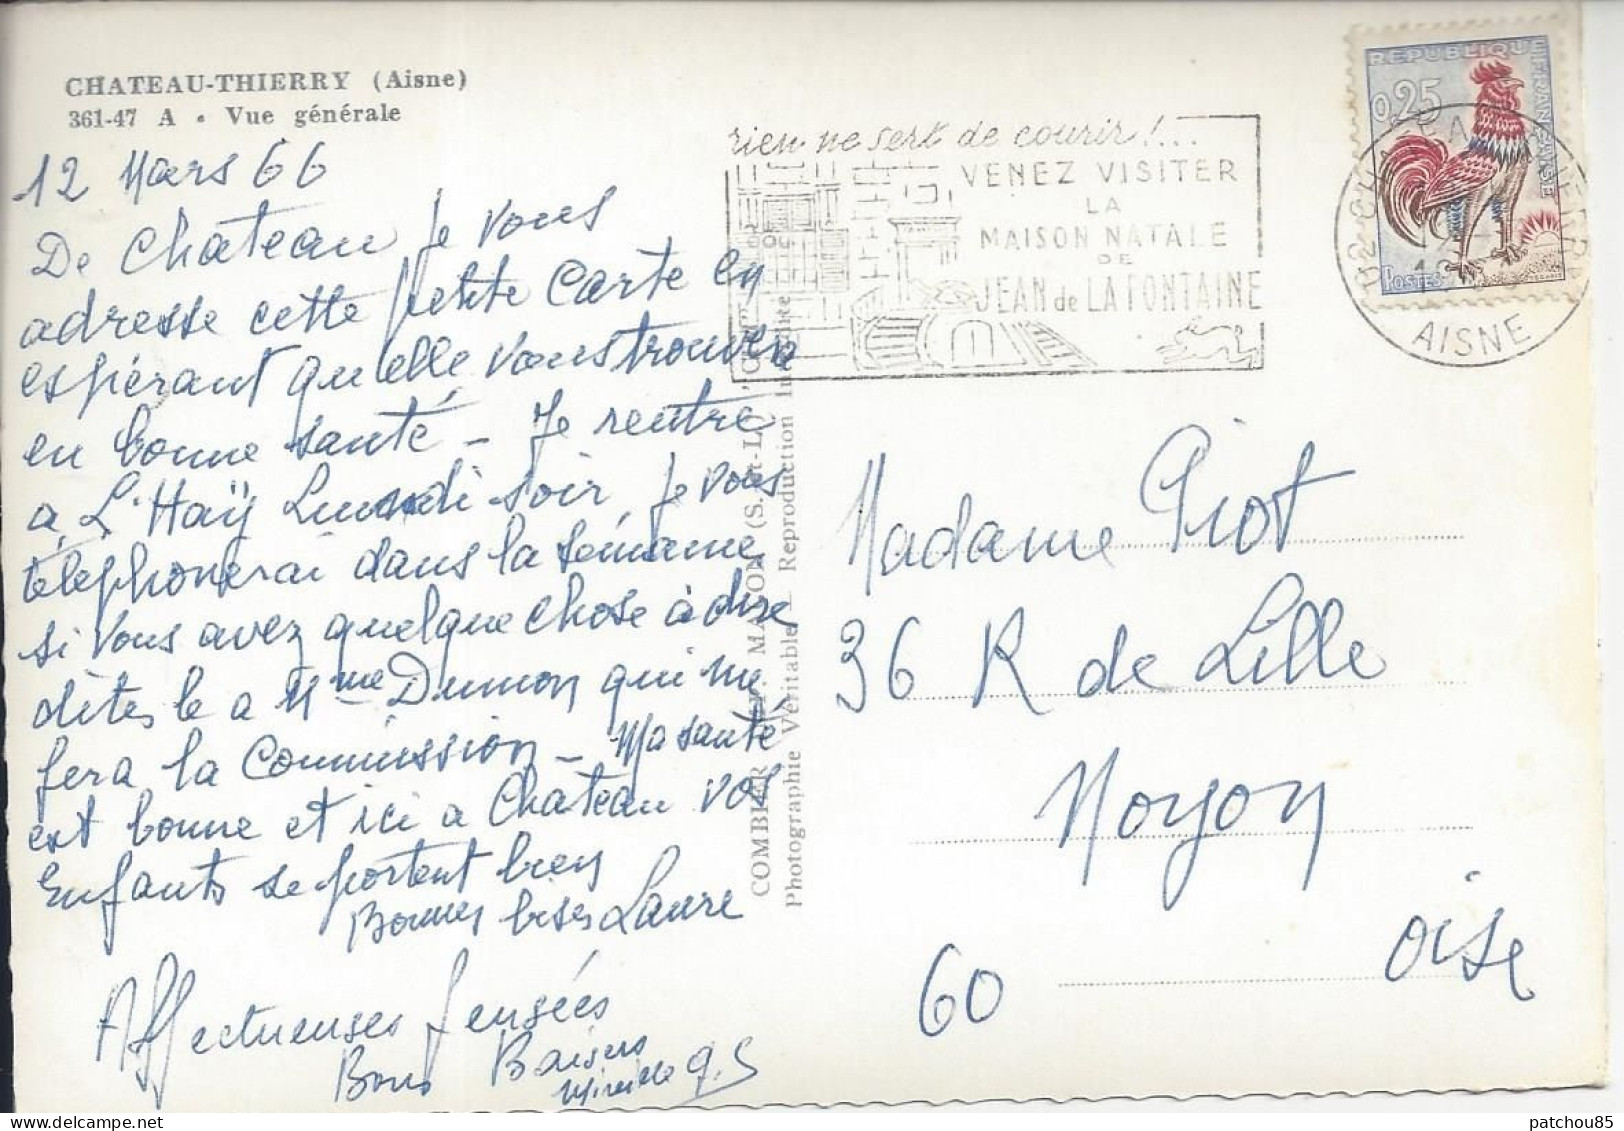 CHATEAU-THIERRY (Aisne)
361-47 A • Vue générale
12 Mars 66
De Chateau je vous
adresse cette petite carte en
espérant qu'elle vous trouvera
en bonne santé - Je rentre
à L'Haÿ Lundi soir, je vous
téléphonerai dans la semaine,
si vous avez quelque chose à dire
dites le a Mme Dumon qui me
fera la Commission - Ma santé
est bonne et ici a Chateau vos
Enfants se portent bien
Bonnes bises Laure
Affectueuses pensées
Bons Baisers
Mireille
rien ne sert de courir!...
VENEZ VISITER
LA
MAISON NATALE
DE
JEAN de LA FONTAINE
REPUBLIQUE FRANÇAISE
0,25
POSTES
AISNE
COMBIER MACON (S.-et-L.)
Photographie Véritable - Reproduction
Madame Piot
36 R de Lille
Noyon
Oise
60
patchou85